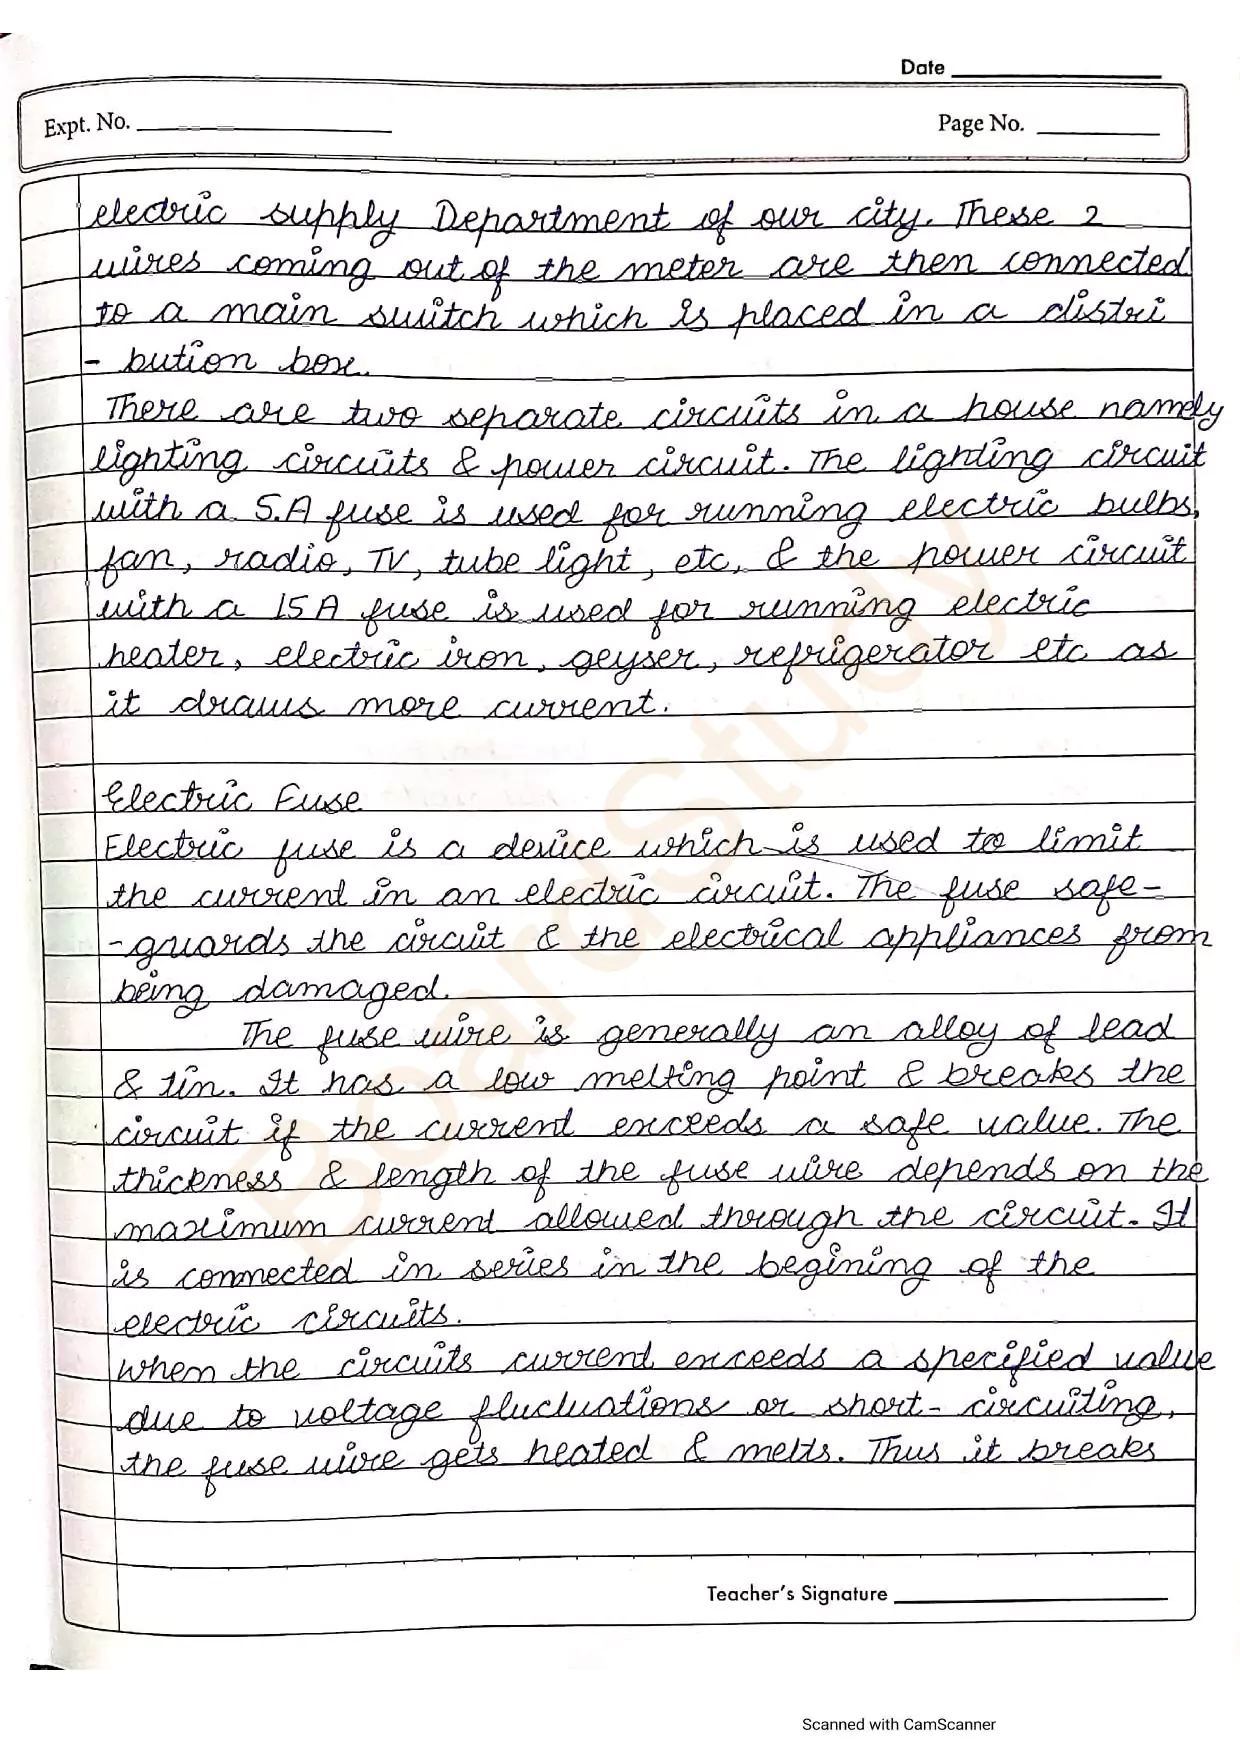 Date
Expt. No.
Page No.
electric supply Department of our city. These 2
wires coming out of the meter are then connected
to a main switch which is placed in a distri
- bution box.
There are two separate circuits in a house namely
lighting circuits & power circuit. The lighting circuit
with a 5.A fuse is used for running electric bulbs,
fan, radio, TV, tube light, etc, & the power circuit
with a 15A fuse is used for running electric
heater, electric iron, geyser, refrigerator etc as
it draws more current.
Electric Fuse
Electric fuse is a device which is used to limit
the current in an electric circuit. The fuse safe-
-guards the circuit & the electrical appliances from
being damaged.
The fuse wire is generally an alloy of lead
& tin. It has a low melting point & breaks the
circuit if the current exceeds a safe value. The
thickness & length of the fuse wire depends on the
maximum current allowed through the circuit. It
is connected in series in the begining of the
electric circuits.
When the circuits current exceeds a specified value
due to voltage fluctuations or short- circuiting,
the fuse wire gets heated & melts. Thus it breaks
Teacher's Signature
BoardStudy
Scanned with CamScanner